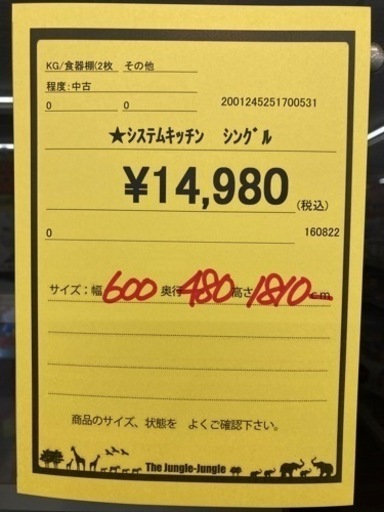 KG/食器棚(2枚 その他
程度:中古
0 0 2001245251700531
★システムキッチン シングル
¥14,980(税込)
0 160822
サイズ:幅600奥行480高さ1810cm
商品のサイズ、状態を よくご確認下さい。
The Jungle-Jungle